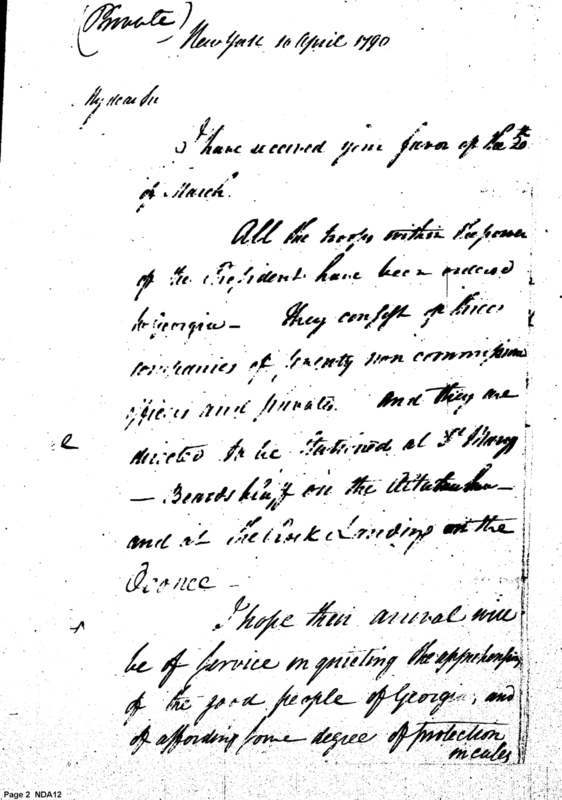 (Private)
New York 10 April 1790
My dear Sir
I have received your favor of the 20th
of March.
All the troops within the power
of the President have been ordered
to Georgia — They consist of three
companies of seventy non commission
officers and privates. and they are
directed to be stationed at St Marys
— Beards bluff on the Altamaha —
and at the Rock Landing on the
Oconee —
I hope their arrival will
be of service in quieting the apprehensions
of the good people of Georgia, and
of affording some degree of protection
in cases
Page 2 NDA12